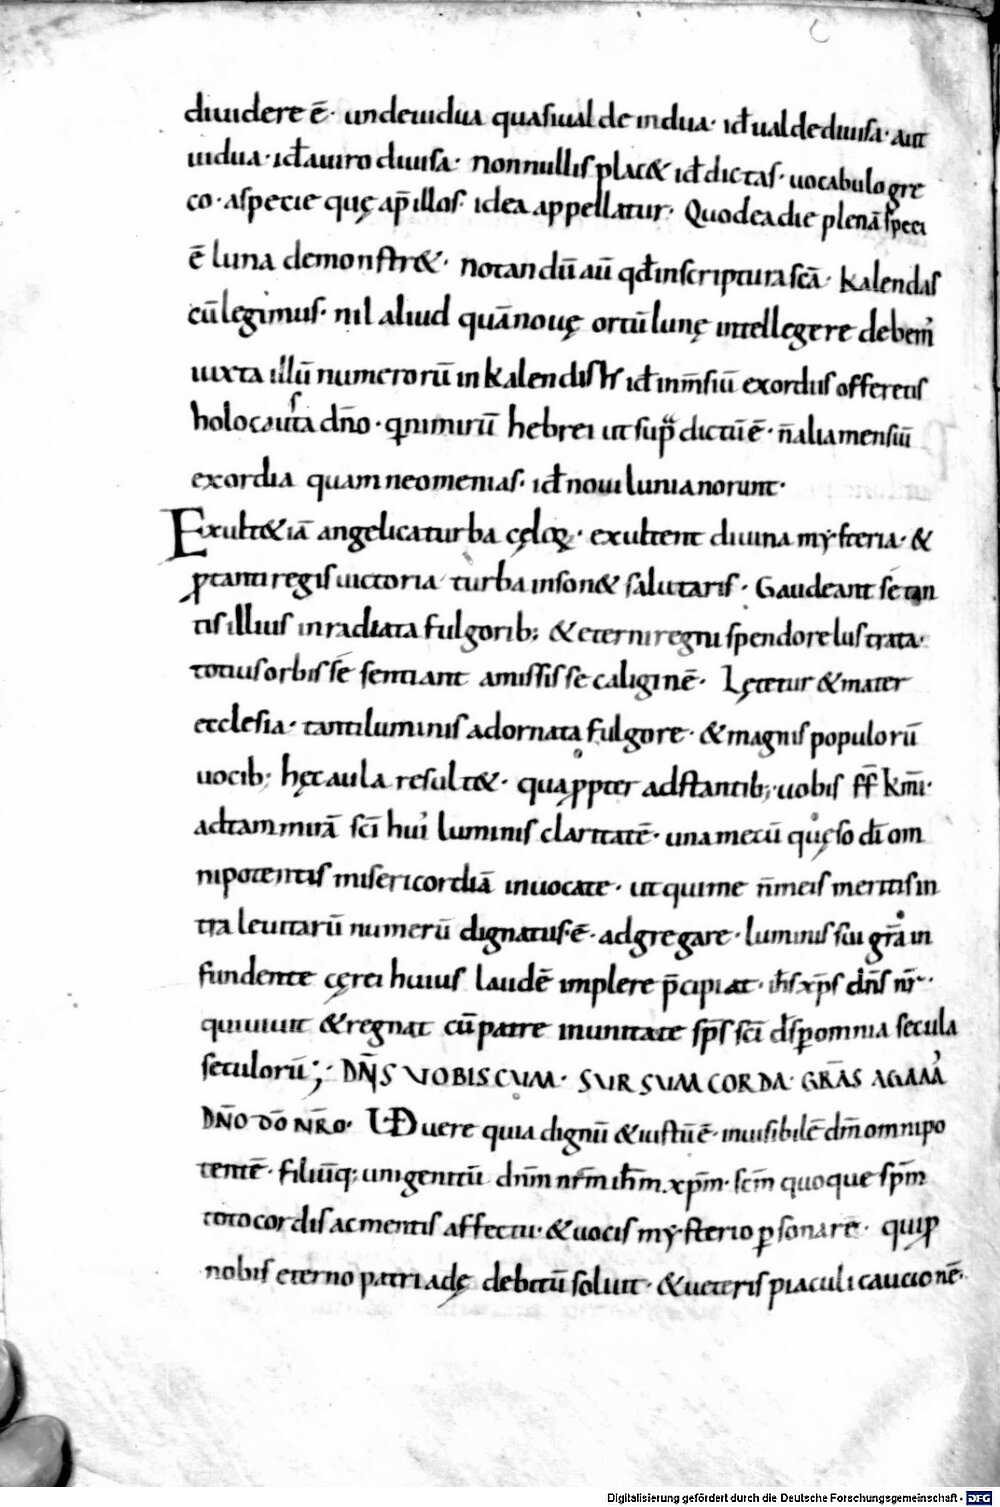 diuidere ē· unde uidua quasi ualde in dua· id÷ ualde diuisa· aut
uidua· id÷ a uiro diuisa· nonnullis plac& id÷ dictas· uocabulo gre
co· a specie quę ap̄ illos· idea appellatur· Quod ea die plenā speci
ē luna demonstr&· notandū aū qđ in scriptura sc̄a· kalendas
cū legimus· nil aliud quā nouę ortū lunę intellegere debem'
iuxta illū numerorū in kalendis id÷ in m̄siū exordiis offeretis
holocausta dn̄o· qnimirū hebrei ut supͣ dictū ē· n̄ alia mensiū
exordia quam neomenias· id÷ noui luni a norunt·
Exult& iā angelica turba cęloꝝ· exultent diuina mysteria· &
ꝓ tanti regis uictoria turba inson& salutaris· Gaudeant sé tan
tis illius inradiata fulgorib; & eterni regni spendore lustrata·
totius orbis sé sentiant amississe caliginē· Lętetur & mater
ecclesia· tanti luminis adornata fulgore· & magnis populorū
uocib; hęc aula result&· quaꝓpter adstantib; uobis ff̄ km̄i·
ad tam mirā sc̄i hui' luminis claritatē· una mecū quęso dī om
nipotentis misericordiā inuocate· ut qui me n̄ meis meritis in
tra leuitarū numerū dignatus ē· adgregare· luminis sui gr̄a in
fundente cęrei huius laudē implere p̄cipiat· ih̄s xp̄s dn̄s nr̄·
qui uiuit & regnat cū patre in unitate sp̄s sc̄i d̄s ꝑ omnia secula
seculorū; DN̄S VOBISCVM· SVRSVM CORDA· GRĀS AGAM'
DN̄O DŌ NR̄O· UD uere quia dignū & iustū ē· inuisibilē dm̄ omnipo
tentē· filiūq; unigenitū dn̄m nr̄m ih̄m xp̄m· sc̄m quoque sp̄m
toto cordis ac mentis affectu· & uocis mysterio ꝑsonare· quip
nobis eterno patri adę debitū soluit· & ueteris piaculi caucionē·
Digitalisierung gefördert durch die Deutsche Forschungsgemeinschaft - DFG